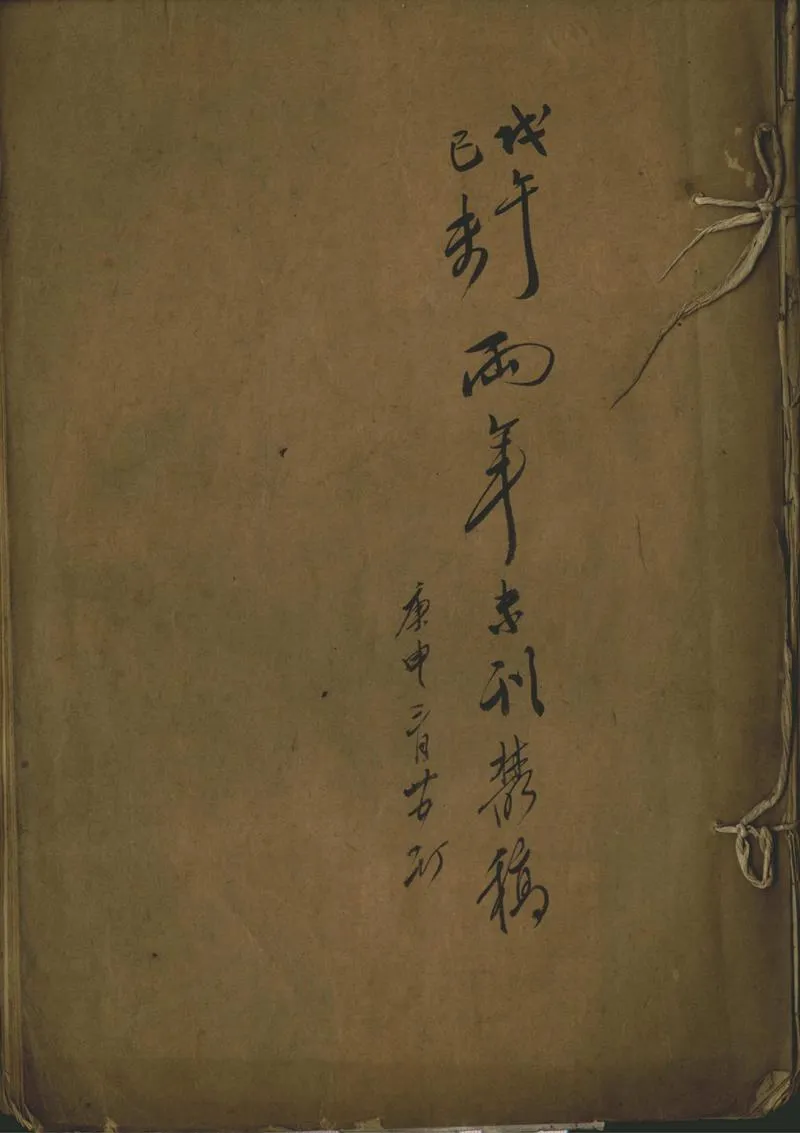 戊午
己未
兩年未刊叢稿
庚申三月廿六訂